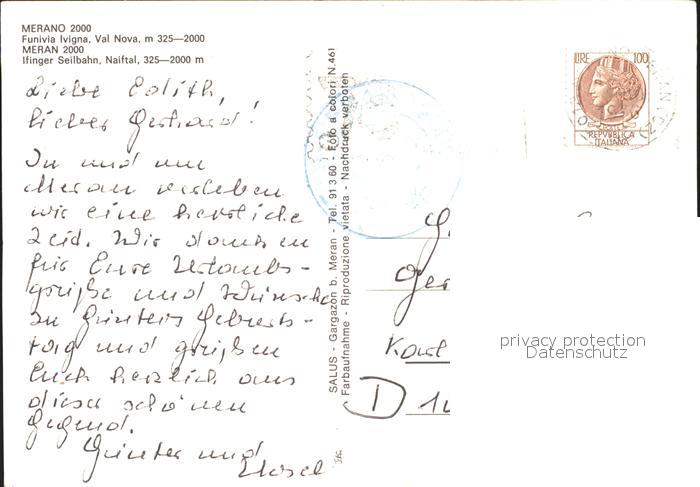 MERANO 2000
Funivia Ivigna, Val Nova, m 325—2000
MERAN 2000
Ifinger Seilbahn, Naiftal, 325—2000 m
Liebe Edith,
lieber Gerhard!
In und um
Meran verleben
wir eine herrliche
Zeit. Wir danken
für Eure Urlaubs-
grüße und Wünsche
zu Günters Geburts-
tag und grüßen
Euch herzlich aus
dieser schönen
Gegend.
Günter und
SALUS - Gargazon b. Meran - Tel. 91 3 60 - Foto a colori N.461
Farbaufnahme - Riproduzione vietata - Nachdruck verboten
LIRE 100
REPVBBLICA
ITALIANA
Ger
Karl
D 1
privacy protection
Datenschutz